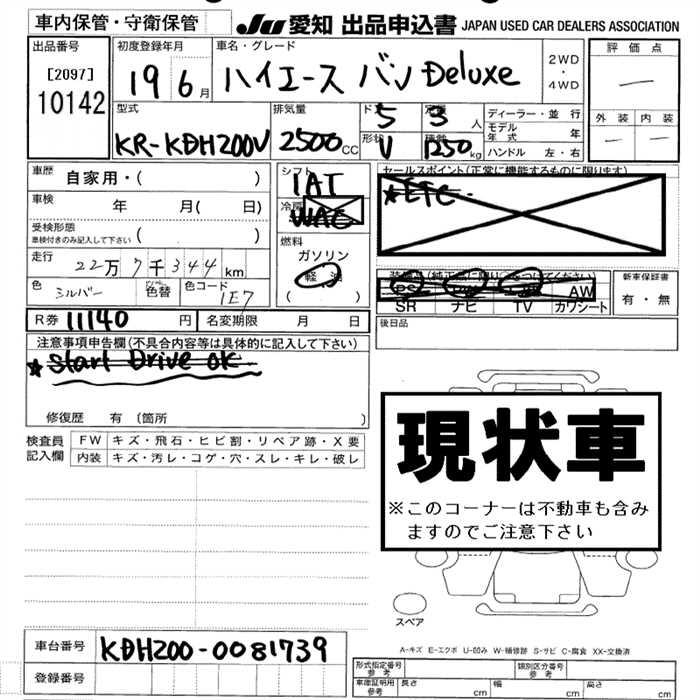 車内保管・守衛保管
JU 愛知 出品申込書 JAPAN USED CAR DEALERS ASSOCIATION
出品番号
[2097]
10142
初度登録年月
19 6月
車名・グレード
ハイエース バン Deluxe
2WD
・
4WD
評価点
—
外装 内装
— —
型式
KR-KDH200V
排気量
2500cc
ドア 5
形状 V
定員 3人
積載 1250kg
ディーラー・並行
モデル年式 年
ハンドル 左・右
車歴 自家用・( )
車検 年 月( 日)
受検形態
車検付きのみ記入して下さい ( )
走行 22万7千344km
色 シルバー 色替 色コード 1E7
シフト
IAT
冷房
WAC
燃料
ガソリン
軽油
( )
セールスポイント(正常に機能するものに限ります)
★ETC
SR ナビ TV カワシート
AW
新車保証書
有・無
R券 11140円 名変期限 月 日
後日品
注意事項申告欄(不具合内容等は具体的に記入して下さい)
★Start Drive OK
修復歴 有 〔箇所 〕
検査員記入欄
FW キズ・飛石・ヒビ割・リペア跡・X要
内装 キズ・汚レ・コゲ・穴・スレ・キレ・破レ
現状車
※このコーナーは不動車も含み
ますのでご注意下さい
スペア
A-キズ E-エクボ U-凹み W-補修跡 S-サビ C-腐食 XX-交換済
車台番号 KDH200-0081739
登録番号
形式指定番号 参考 類別区分番号 参考
車庫証明用 参考 長さ cm 幅 cm 高さ cm